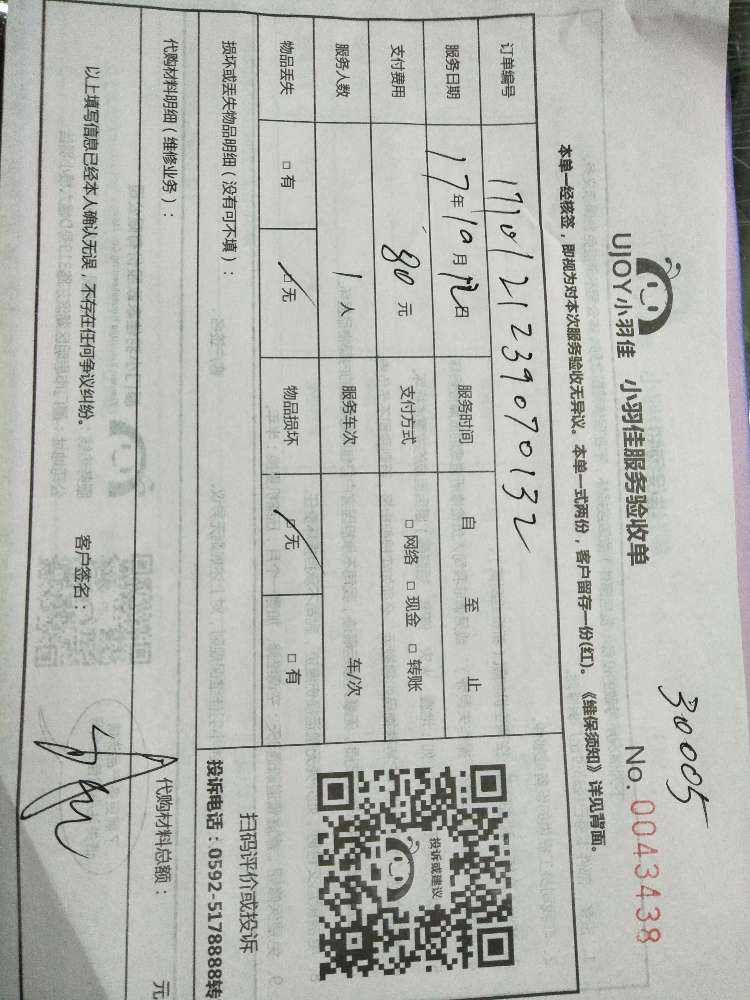 30005
UJOY小羽佳 小羽佳服务验收单 No. 0043438
本单一经核签，即视为对本次服务验收无异议。本单一式两份，客户留存一份(红)。《维保须知》详见背面。
订单编号 1710121239070132
服务日期 17年10月12日 服务时间 自 至 止
支付费用 80元 支付方式 □网络 □现金 □转账
服务人数 1人 服务车次 车/次
物品丢失 □有 □无 物品损坏 □无 □有
投诉或建议
损坏或丢失物品明细（没有可不填）：
扫码评价或投诉
投诉电话：0592-5178888转
代购材料明细（维修业务）：
代购材料总额： 元
以上填写信息已经本人确认无误，不存在任何争议纠纷。 客户签名：